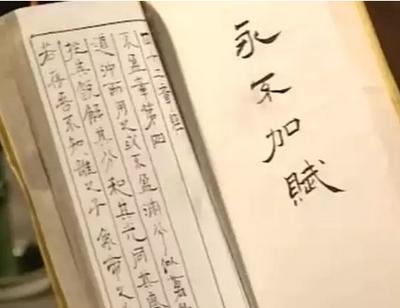 永不加賦
四十二章經
不盈章第四
道沖而用之或不盈淵兮似萬
挫其銳解其分和其光同其塵
若存吾不知誰之子象帝之